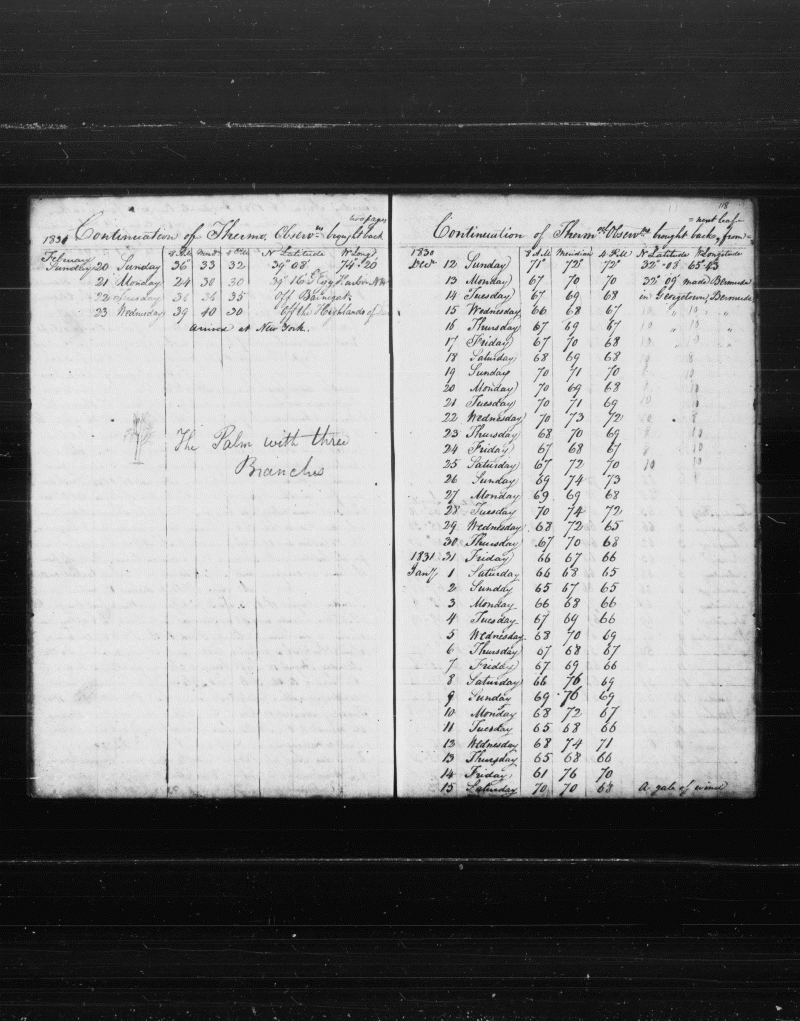 two pages
1831 Continuation of Thermo. Observns brought back
8 A.M Merdn 4 P.M N Latitude W Longd
Febuary
Sunday 20 Sunday 36° 33 32 39° 08' 74° 20
21 Monday 24 30 30 39° 16
22 Tuesday 30 34 35 Off Barnigat
23 Wednesday 39 40 30 Off the Highlands of
arrived at New York.
The Palm with three
Branches
118
= next leaf =
Continuation of Therml Observtns brought back from =
1830 8 A.M Meridian 4 P.M N Latitude W Longitude
Decr 12 Sunday 71° 72° 72° 32°-08 65°43
13 Monday 67 70 70 32° 09' made Bermuda
14 Tuesday 67 69 68 in Georgetown, Bermuda
15 Wednesday 66 68 67 10 " 10 "
16 Thursday 67 69 67 10 " 10 "
17 Friday 67 70 68 10
18 Saturday 68 69 68 8
19 Sunday 70 71 70 10
20 Monday 70 69 68 10
21 Tuesday 70 71 69 10
22 Wednesday 70 73 72 8
23 Thursday 68 70 69 10
24 Friday 67 68 67 10
25 Saturday 67 72 70 10 10
26 Sunday 69 74 73
27 Monday 69 69 68
28 Tuesday 70 74 72
29 Wednesday 68 72 65
30 Thursday 67 70 68
1831 31 Friday 66 67 66
Jany 1 Saturday 66 68 65
2 Sunday 65 67 65
3 Monday 66 68 66
4 Tuesday 67 69 66
5 Wednesday 68 70 69
6 Thursday 67 68 67
7 Friday 67 69 66
8 Saturday 66 76 69
9 Sunday 69 76 69
10 Monday 68 72 67
11 Tuesday 65 68 66
12 Wednesday 68 74 71
13 Thursday 65 68 66
14 Friday 61 76 70
15 Saturday 70 70 68 A gale of wind